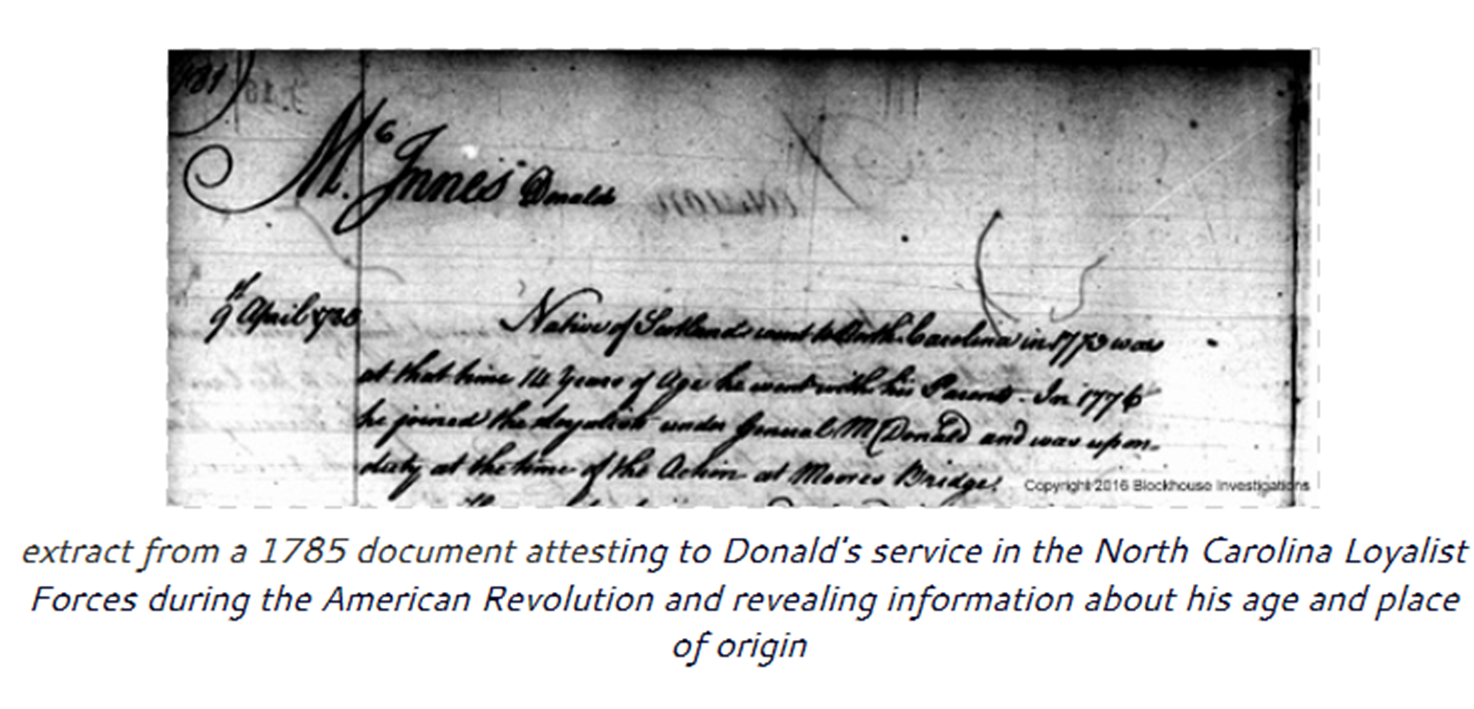 Mc Innes Donald
9th April 1785
Native of Scotland went to North Carolina in 1773 was
at that time 14 Years of Age he went with his Parents. In 1776
he joined the Loyalists under General McDonald and was upon
duty at the time of the Action at Moores Bridge.
Copyright 2016 Blockhouse Investigations
extract from a 1785 document attesting to Donald's service in the North Carolina Loyalist
Forces during the American Revolution and revealing information about his age and place
of origin